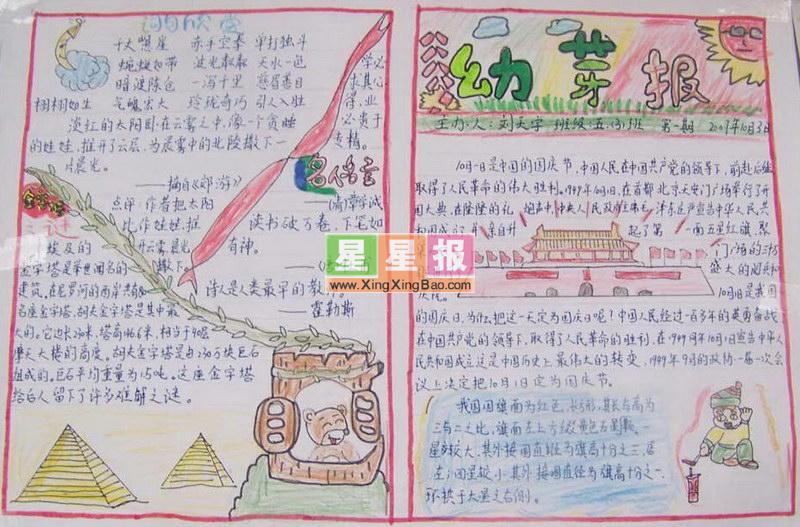 词句欣赏
大 赤手空拳 单打独斗
蜿蜒如带 波光粼粼 天水一色
暗渡陈仓 一泻千里 慈眉善目
栩栩如生 气魄宏大 玲珑奇巧 引人入胜
淡红的太阳卧在云雾之中,像一个贪睡
的娃娃,推开了云层,为晨雾中的北陵撒下一
片晨光。
——摘自《郊游》
点评:作者把太阳
比作娃娃,推
开云雾晨光
撒下
学必
求其心
得,业
必贵于
专精。
名人格言
——(清)章学诚
读书破万卷,下笔如
有神。
诗人是人类最早的教
霍勒斯
之谜
埃及的
金字塔是举世闻名的
建筑,在尼罗河的西岸共有
名座金字塔,胡夫金字塔是其中最
大的。它边长230米,塔高146.6米,相当于40层
摩天大楼的高度。胡夫金字塔是由230万块巨石
组成的。巨石平均重量为1.5吨。这座金字塔
给后人留下了许多难解之谜。
幼芽报
主办人:刘天宇 班级:五(3)班 第一期 2009年10月3日
10月1日是中国的国庆节,中国人民在中国共产党的领导下,前赴后继
取得了人民革命的伟大胜利。1949年10月1日,在首都北京天安门广场举行了开
国大典,在隆隆的礼炮声中,中央人民政府主席毛泽东庄严宣告中华人民共
和国成立,并亲自升起了第一面五星红旗。聚
门广场的三十万
盛大的阅兵和
庆民。10月1日是我国
的国庆日,为什么把这一天定为国庆日呢?中国人民经过一百多年的英勇奋战
在中国共产党的领导下,取得了人民革命的胜利,在1949年10月1日宣告中华人
民共和国成立,这是中国历史上最伟大的转变,1949年9月的政协一届一次会
议上决定把10月1日定为国庆节。
我国国旗面为红色,长方形,其长与高为
三与二之比,旗面左上方缀黄色五星五颗。一
星较大,其外接圆直径为旗高十分之三,居
左;四星较小,其外接圆直径为旗高十分之一,
环拱于大星之右侧。
星星报
www.XingXingBao.com